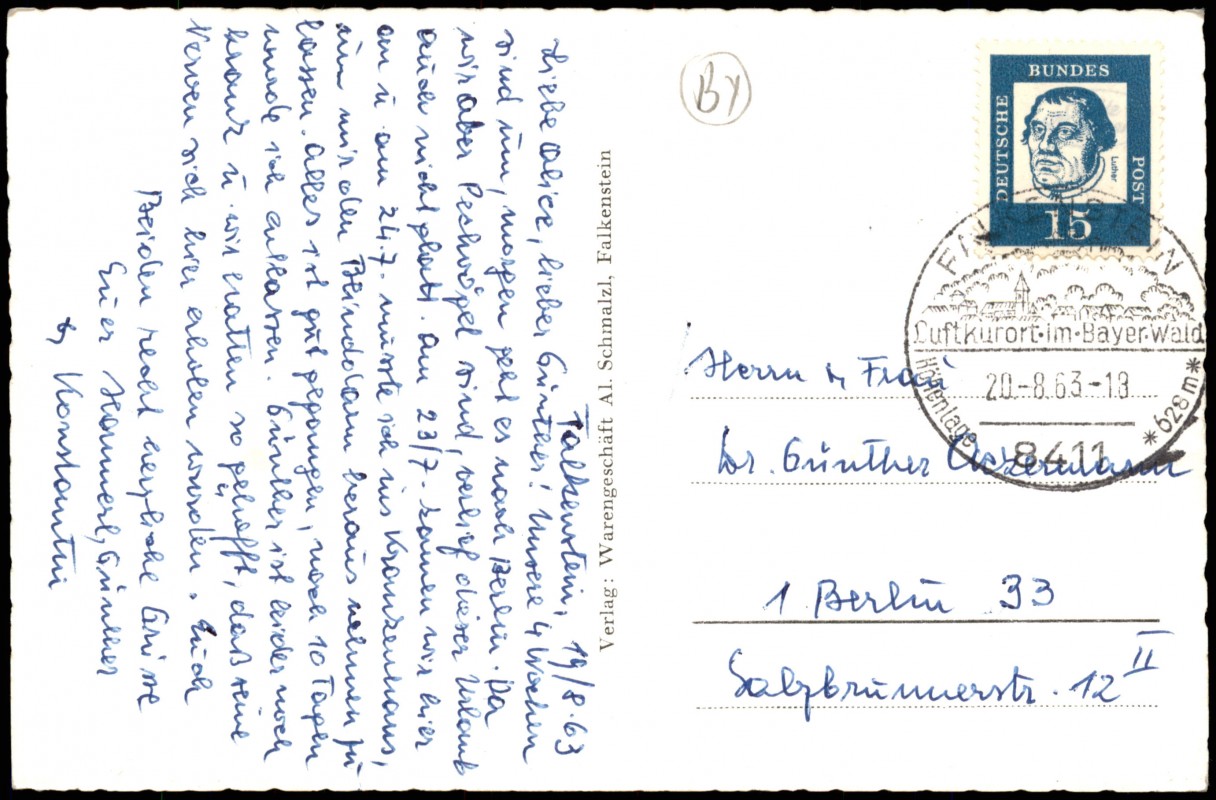 Falkenstein, 19/8.63
Liebe Alice, lieber Günther! Unsere 4 Wochen
sind um, morgen geht es nach Berlin. Da
wir aber Pechvögel sind, verlief dieser Urlaub
auch nicht glatt. Am 23/7 kamen wir hier
an u am 24.7. musste ich ins Krankenhaus,
um mir den Blinddarm heraus nehmen zu
lassen. Alles ist gut gegangen, nach 10 Tagen
wurde ich entlassen. Günther ist leider noch
krank u. wir hatten so gehofft, daß seine
Nerven sich hier erholen würden. Euch
Beiden recht herzliche Grüsse
Euer Hannerl, Günther
u Konstantin
Verlag: Warengeschäft Al. Schmalzl, Falkenstein
BY
DEUTSCHE BUNDES POST
Luther
15
FALKENSTEIN
Luftkurort·im·Bayer·Wald
20.-8.63-18
Höhenlage * 628m *
8411
Herrn u Frau
Dr. Günther
1 Berlin 33
Salzbrunnerstr. 12 II